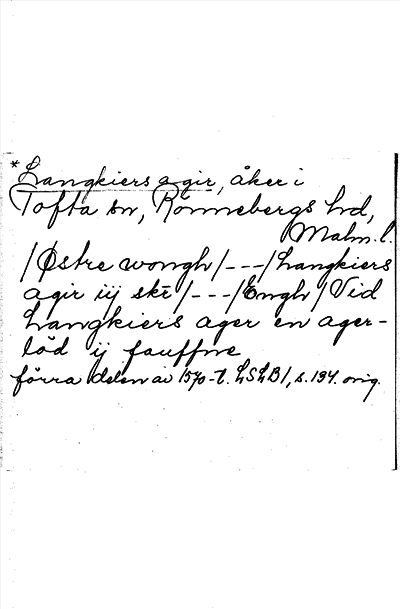 *Langkiers agir, åker i
Tofta sn, Rönnebergs hd,
Malm.l.
/Østre wongh/---/Langkiers
agir iij skr̄/---/Engh/Vid
Langkiers ager en ager-
löd ij fauffne
förra delen av 1570-t. LSLB1, s.194. orig.